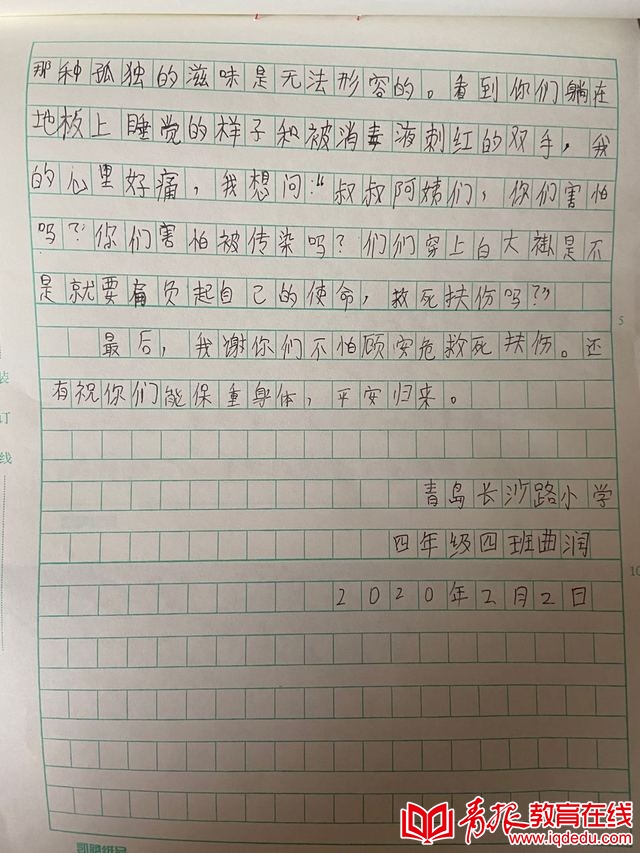 那种孤独的滋味是无法形容的。看到你们躺在
地板上睡觉的样子和被消毒液刺红的双手，我
的心里好痛，我想问：“叔叔阿姨们，你们害怕
吗？你们害怕被传染吗？们们穿上白大褂是不
是就要肩负起自己的使命，救死扶伤吗？”
最后，我谢你们不怕顾安危救死扶伤。还
有祝你们能保重身体，平安归来。
青岛长沙路小学
四年级四班曲润
2020年2月2日
5
10
装
订
线
青报教育在线
www.iqdedu.com